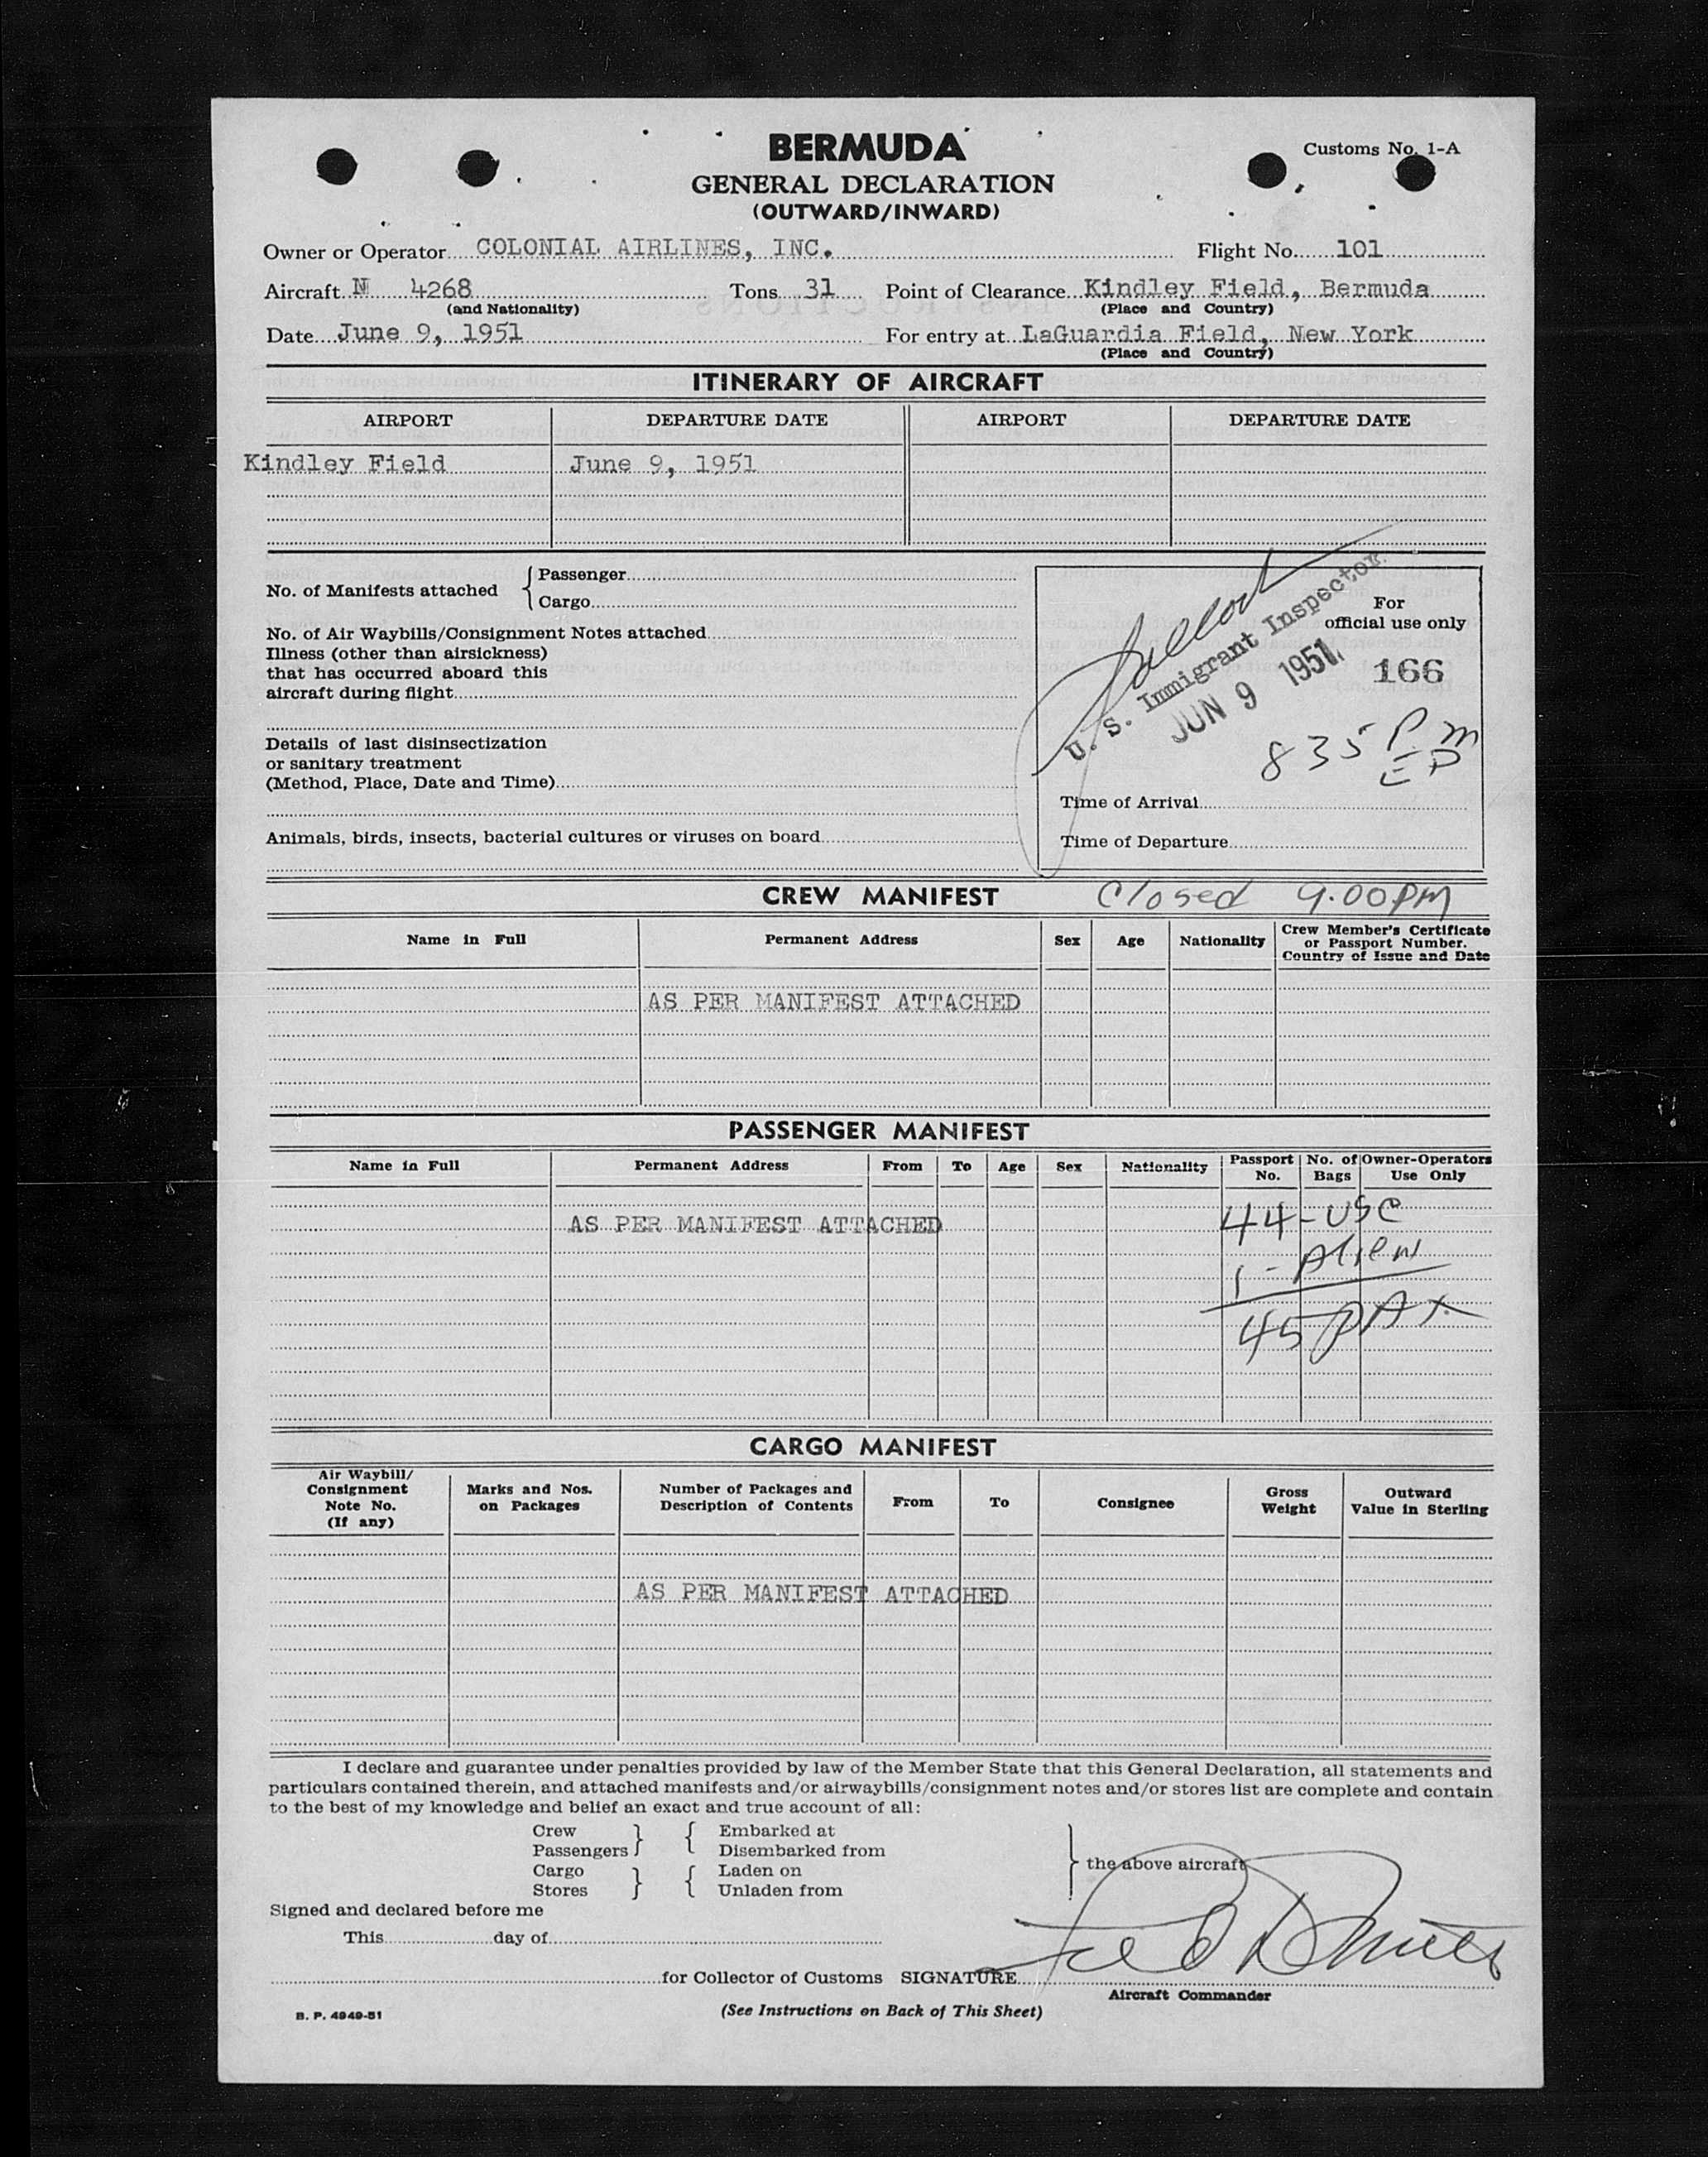 BERMUDA
Customs No. 1-A
GENERAL DECLARATION
(OUTWARD/INWARD)
Owner or Operator COLONIAL AIRLINES, INC. Flight No. 101
Aircraft N 4268 Tons 31 Point of Clearance Kindley Field, Bermuda
(and Nationality) (Place and Country)
Date June 9, 1951 For entry at LaGuardia Field, New York
(Place and Country)
ITINERARY OF AIRCRAFT
AIRPORT DEPARTURE DATE AIRPORT DEPARTURE DATE
Kindley Field June 9, 1951
No. of Manifests attached { Passenger
Cargo
No. of Air Waybills/Consignment Notes attached
Illness (other than airsickness)
that has occurred aboard this
aircraft during flight
Details of last disinsectization
or sanitary treatment
(Method, Place, Date and Time)
Animals, birds, insects, bacterial cultures or viruses on board
For
official use only
U. S. Immigrant Inspector
JUN 9 1951
166
835 PM
ED
Time of Arrival
Time of Departure
CREW MANIFEST Closed 9.00 PM
Name in Full Permanent Address Sex Age Nationality Crew Member's Certificate
or Passport Number.
Country of Issue and Date
AS PER MANIFEST ATTACHED
PASSENGER MANIFEST
Name in Full Permanent Address From To Age Sex Nationality Passport No. No. of Bags Owner-Operators Use Only
AS PER MANIFEST ATTACHED
44-USC
1-Alien
45 PAX
CARGO MANIFEST
Air Waybill/
Consignment
Note No.
(If any)
Marks and Nos.
on Packages
Number of Packages and
Description of Contents
From To Consignee
Gross
Weight
Outward
Value in Sterling
AS PER MANIFEST ATTACHED
I declare and guarantee under penalties provided by law of the Member State that this General Declaration, all statements and
particulars contained therein, and attached manifests and/or airwaybills/consignment notes and/or stores list are complete and contain
to the best of my knowledge and belief an exact and true account of all:
Crew } { Embarked at
Passengers Disembarked from
Cargo } { Laden on } the above aircraft
Stores Unladen from
Signed and declared before me
This day of
for Collector of Customs SIGNATURE
Aircraft Commander
B. P. 4949-51
(See Instructions on Back of This Sheet)